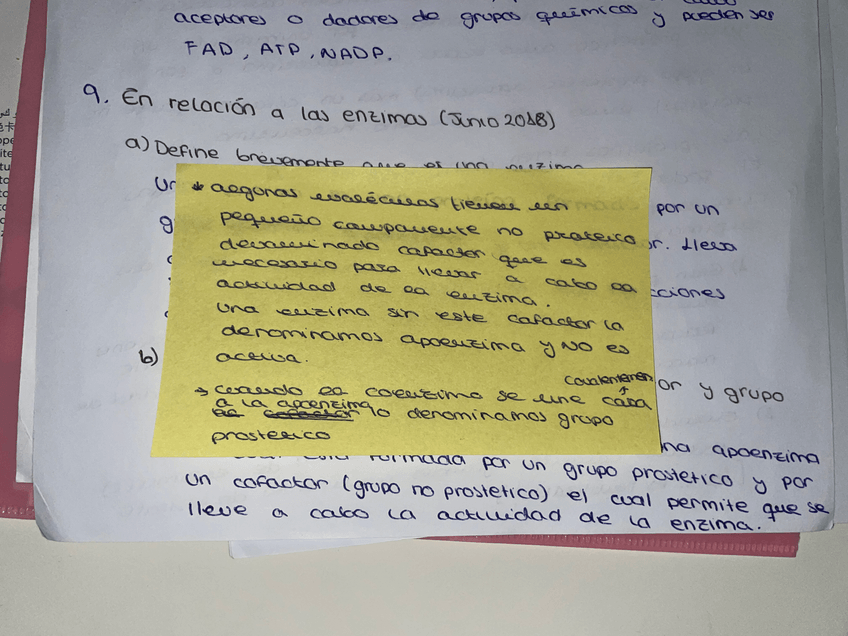 aceptores o dadores de grupos químicos y pueden ser
FAD, ATP, NADP.
9. En relación a las enzimas (Junio 2018)
a) Define brevemente que es una enzima
Un
por un
* algunas moléculas tienen un
pequeño componente no proteico
denominado cofactor que es
necesario para llevar a cabo la
actividad de la enzima.
Una enzima sin este cofactor la
denominamos apoenzima y NO es
activa.
r. Lleva
cciones
b)
or y grupo
→ cuando la coenzima se une
covalentemen
a la apoenzima lo denominamos grupo
prostetico
na apoenzima
formada por un grupo prostetico y por
un cofactor (grupo no prostetico) el cual permite que se
lleve a cabo la actividad de la enzima.